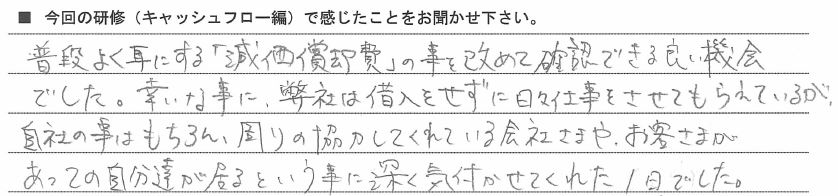 ■ 今回の研修（キャッシュフロー編）で感じたことをお聞かせ下さい。
普段よく耳にする「減価償却費」の事を改めて確認できる良い機会
でした。幸いな事に、弊社は借入をせずに日々仕事をさせてもらえているが、
自社の事はもちろん、周りの協力してくれている会社さまや、お客さまが
あっての自分達が居るという事に深く気付かせてくれた1日でした。